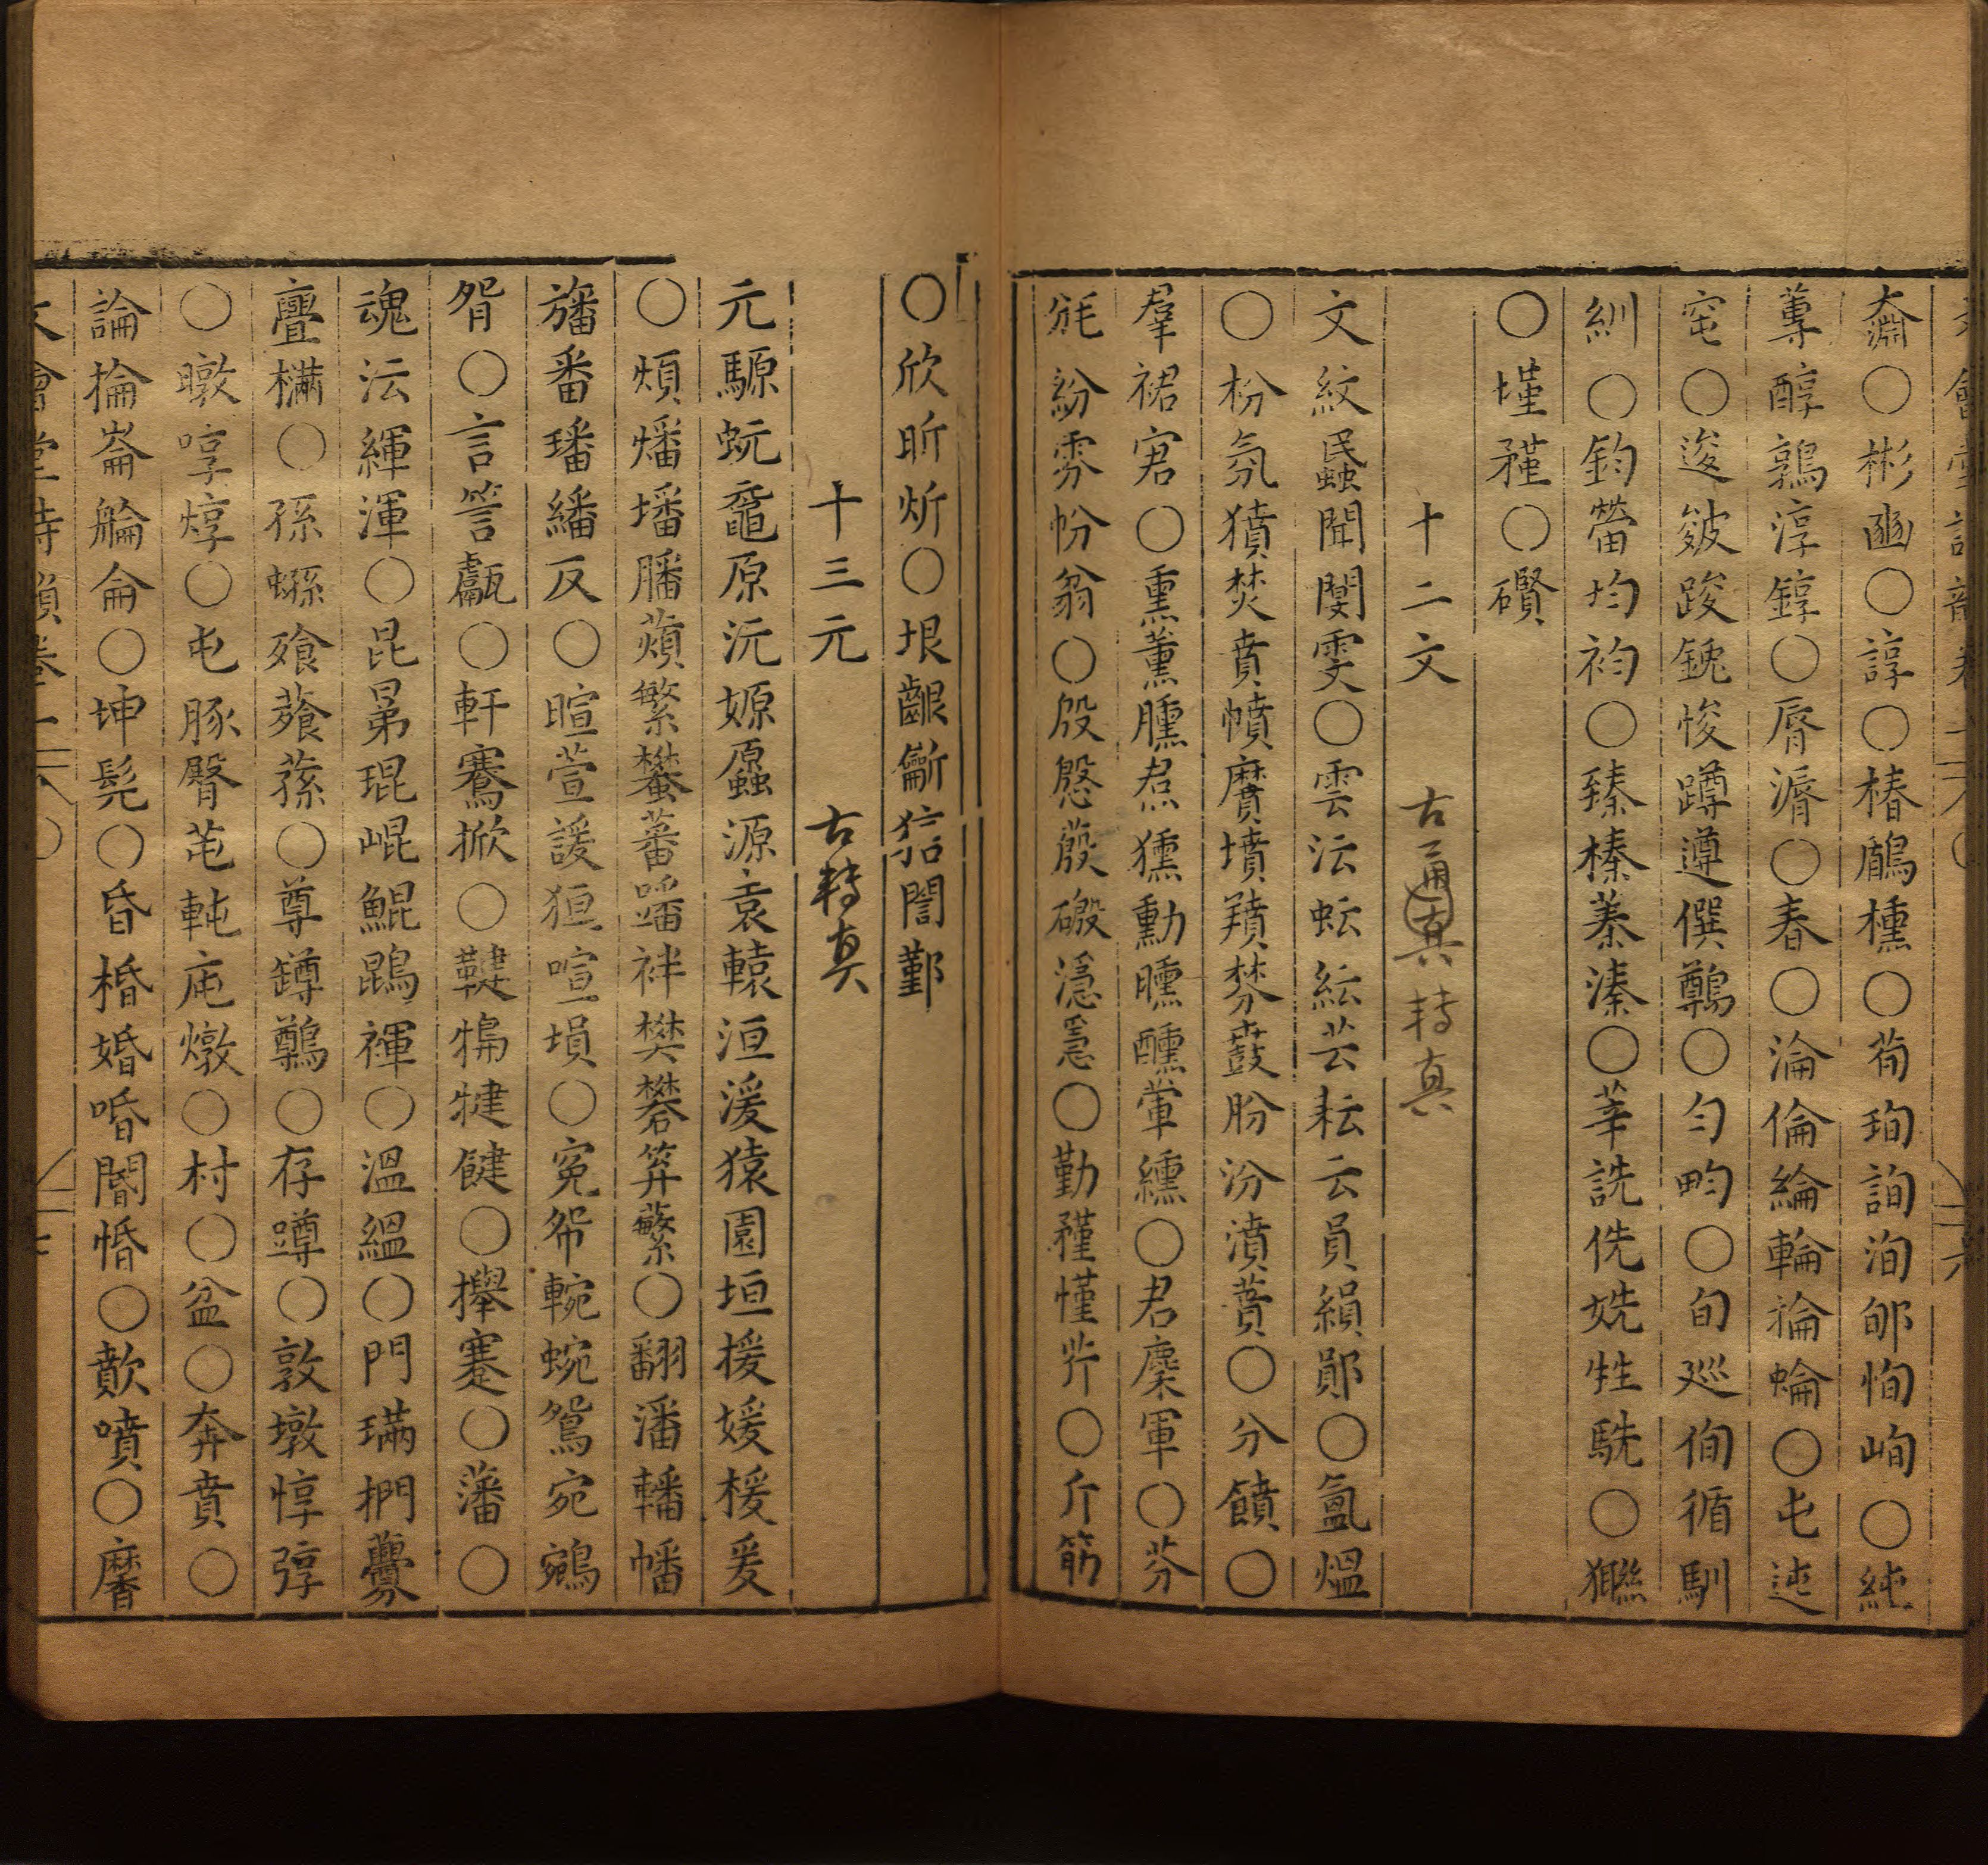 奫○彬豳○諄○椿鶞櫄○荀珣詢洵郇恂峋○純
蓴醇鶉淳錞○脣漘○春○淪倫綸輪掄蜦○屯迍
窀○逡皴踆鋔悛蹲遵僎鷷○勻畇○旬巡侚循馴
紃○鈞䇹均袀○臻榛蓁溱○莘詵侁姺甡駪○獜
○墐矜○礥
十二文 古通真轉真
文紋蟁聞閿雯○雲沄蚖紜芸耘云員縜鄖○氳熅
○枌氛獖焚賁幩黂墳羵棼蕡肦汾濆蕡○分饙○
羣裙宭○熏薰臐焄獯勳曛醺葷纁○君麇軍○芬
衯紛雰帉翁○殷慇蒑磤濦㥯○勤懃慬芹○斤筋
○欣昕炘○垠齦齗狺誾鄞
十三元 古轉真
元騵蚖黿原沅嫄蠠源袁轅洹湲猿園垣援媛楥爰
○煩燔墦膰薠繁蠜蕃蹯袢樊礬笲蘩○翻潘轓幡
旛番璠繙反○暄萱諼狟喧塤○冤帤輐蜿鴛宛鵷
眢○言䇾甗○軒騫掀○鞬犓犍健○攑蹇○藩○
魂沄緷渾○昆晜琨崐鯤鵾褌○溫縕○門璊捫虋
亹樠○孫蟂飧薞蓀○尊罇鷷○存蹲○敦墩惇弴
○暾啍焞○屯豚臀芚軘庉燉○村○盆○奔賁○
論掄崙艑侖○坤髡○昏棔婚惛閽惛○歕噴○黁